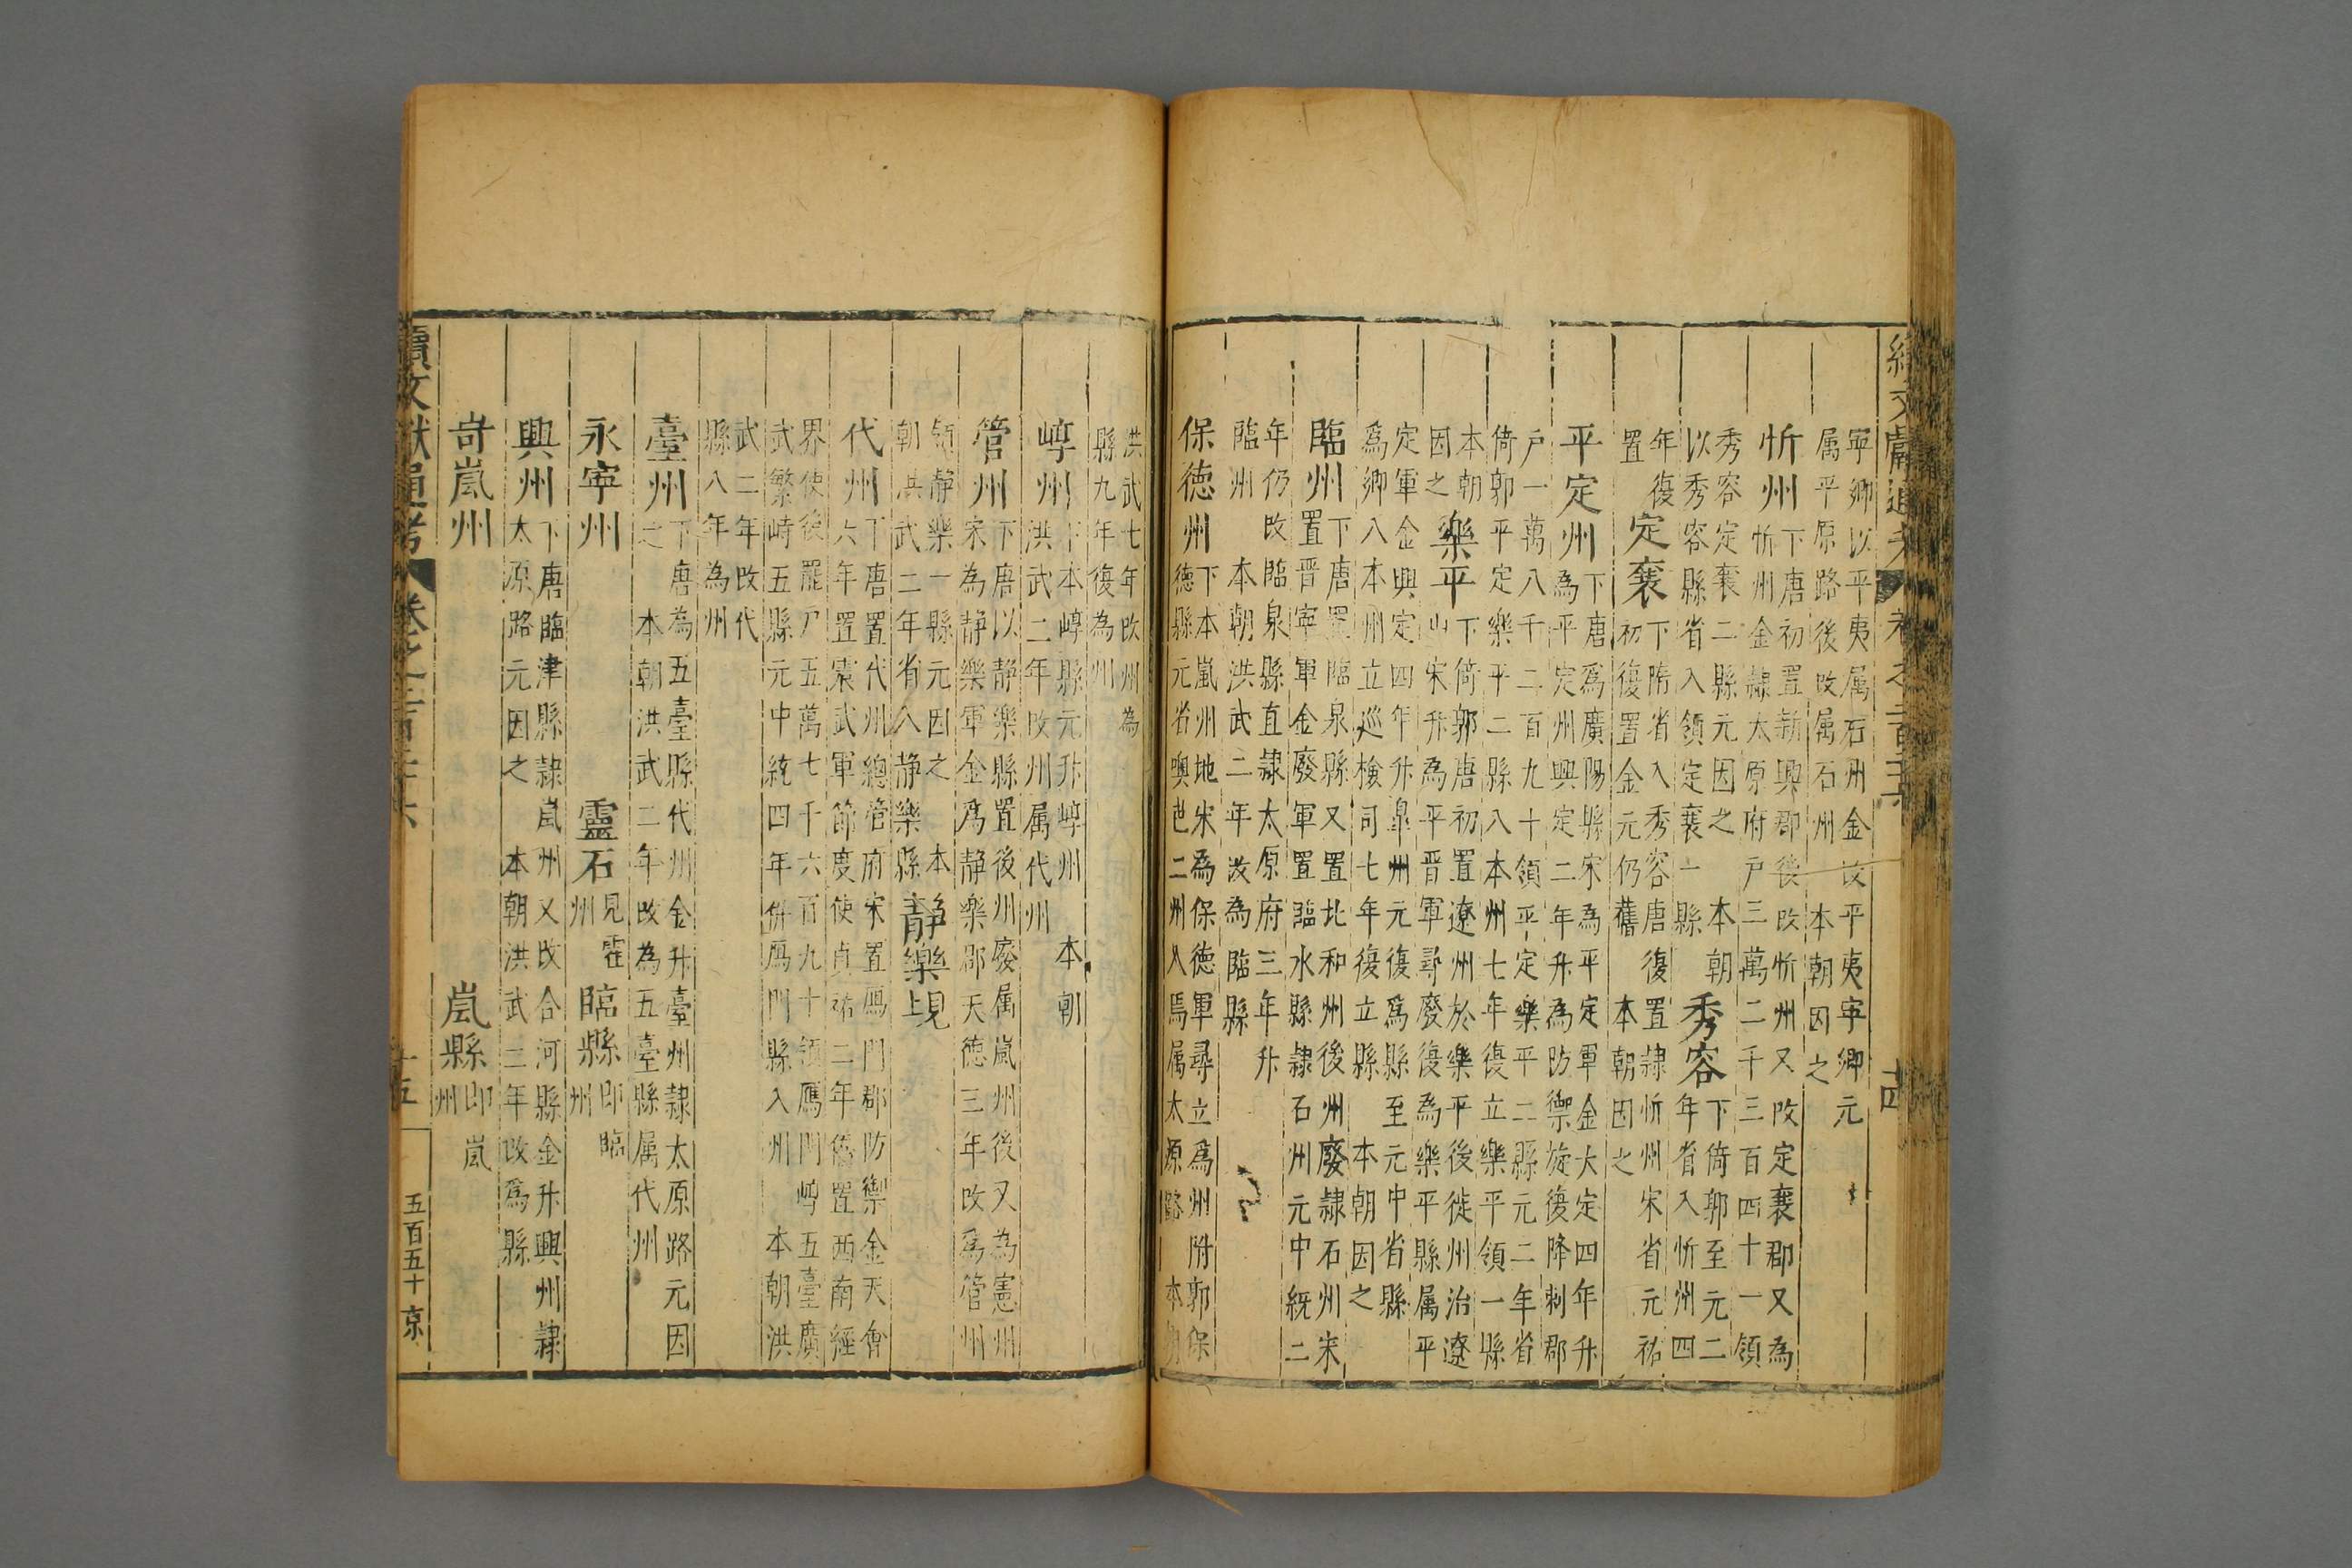 寧鄉以平夷属石州金改平夷寧鄉元
属平原路後改属石州 本朝因之
忻州
下唐初置新興郡後改忻州又改定襄郡又為
忻州金隷太原府户三萬二千三百四十一領
秀容定襄二縣元因之 本朝
以秀容縣省入領定襄一縣
秀容
下倚郭至元二
年省入忻州四
年復
置
定襄
下隋省入秀容唐復置隷忻州宋省元祐
初復置金元仍舊 本朝因之
平定州
下唐爲廣陽縣宋為平定軍金大定四年升
為平定州興定二年升為防禦旋復降刺郡
户一萬八千二百九十領平定樂平二縣元二年省
倚郭平定樂平二縣入本州七年復立樂平領一縣
本朝
因之
樂平
下倚郭唐初置遼州於樂平後徙州治遼
山宋升為平晉軍尋廢復為樂平縣属平
定軍金興定四年升皐州元復爲縣至元中省縣
爲鄉入本州立巡檢司七年復立縣 本朝因之
臨州
下唐置臨泉縣又置北和州後州廢隷石州宋
置晉寧軍金廢軍置臨水縣隷石州元中統二
年仍改臨泉縣直隷太原府三年升
臨州 本朝洪武二年改為臨縣
保德州
下本嵐州地宋為保德軍尋立爲州附郭保
德縣元省噢芭二州入焉属太原路 本朝
洪武七年改州為
縣九年復為州
崞州
下本崞縣元升崞州 本朝
洪武二年改州属代州
管州
下唐以静樂縣置後州廢属嵐州後又為憲州
宋為静樂軍金爲静樂郡天德三年改爲管州
領静樂一縣元因之 本
朝洪武二年省入静樂縣
靜樂
見
上
代州
下唐置代州總管府宋置鴈門郡防禦金天會
六年置震武軍節度使貞祐二年僑置西南經
界使後罷户五萬七千六百九十領鴈門崞五臺廣
武繁峙五縣元中統四年併鴈門縣入州 本朝洪
武二年改代
縣八年為州
臺州
下唐為五臺縣代州金升臺州隷太原路元因
之 本朝洪武二年改為五臺縣属代州
永寧州
靈石
見霍
州
臨縣
即臨
州
興州
下唐臨津縣隷嵐州又改合河縣金升興州隷
太原路元因之 本朝洪武二年改爲縣
岢嵐州
嵐縣
即嵐
州
續文獻通考 卷之二百二十六
十五
五百五十 京